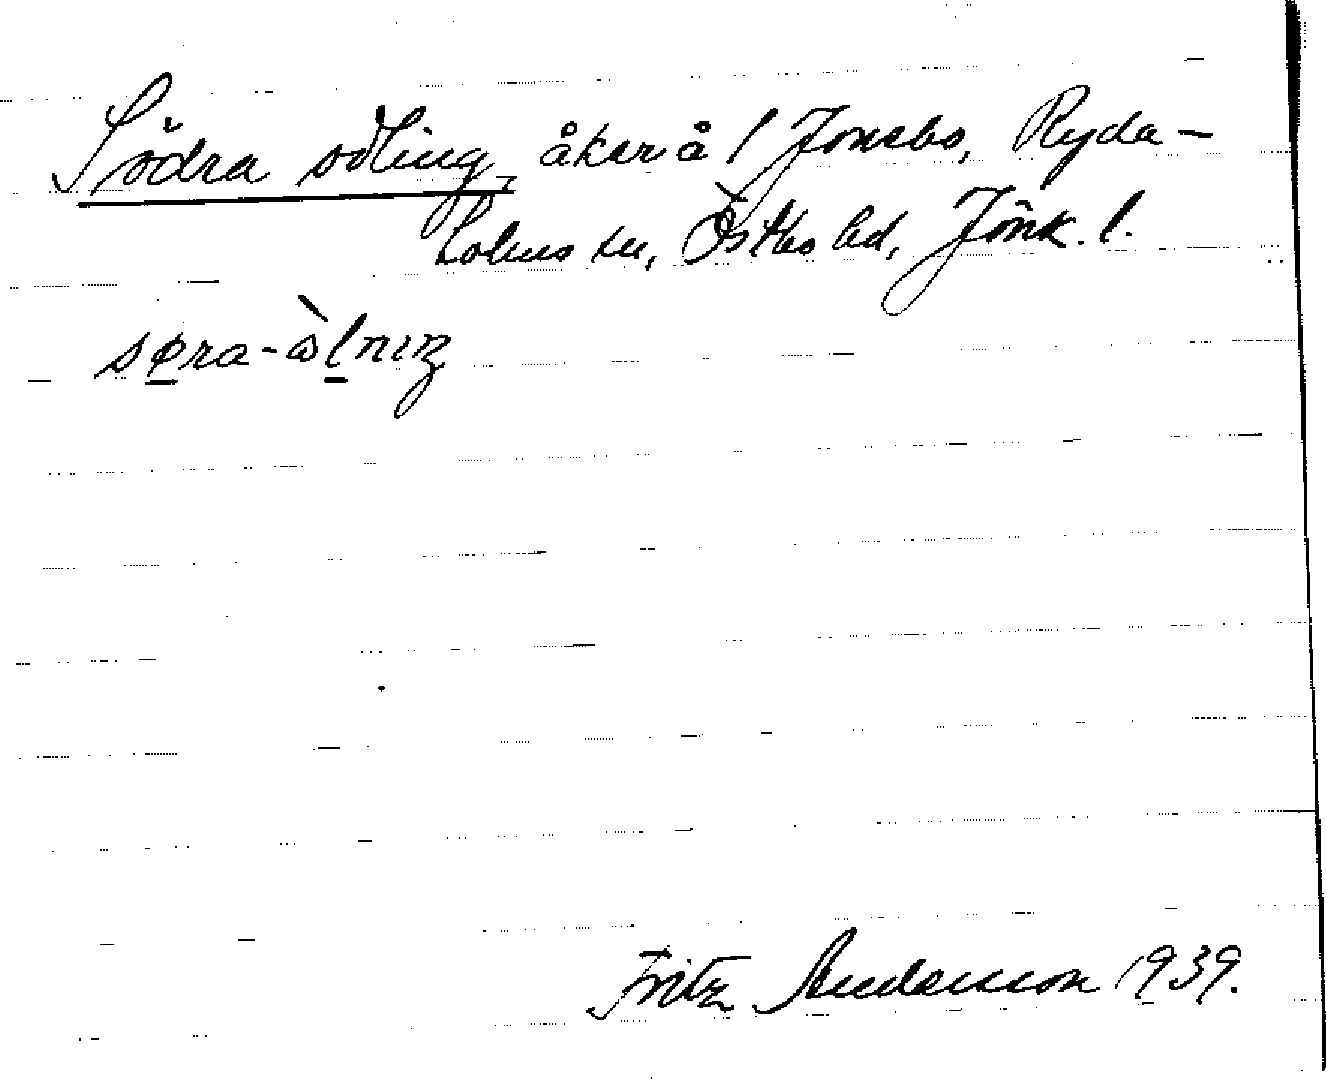 Södra odling, åker å 1 Jonsbo, Ryda-
holms sn, Östbo hd, Jönk. l.
søra-òlnıŋ
Fritz Andersson 1939.